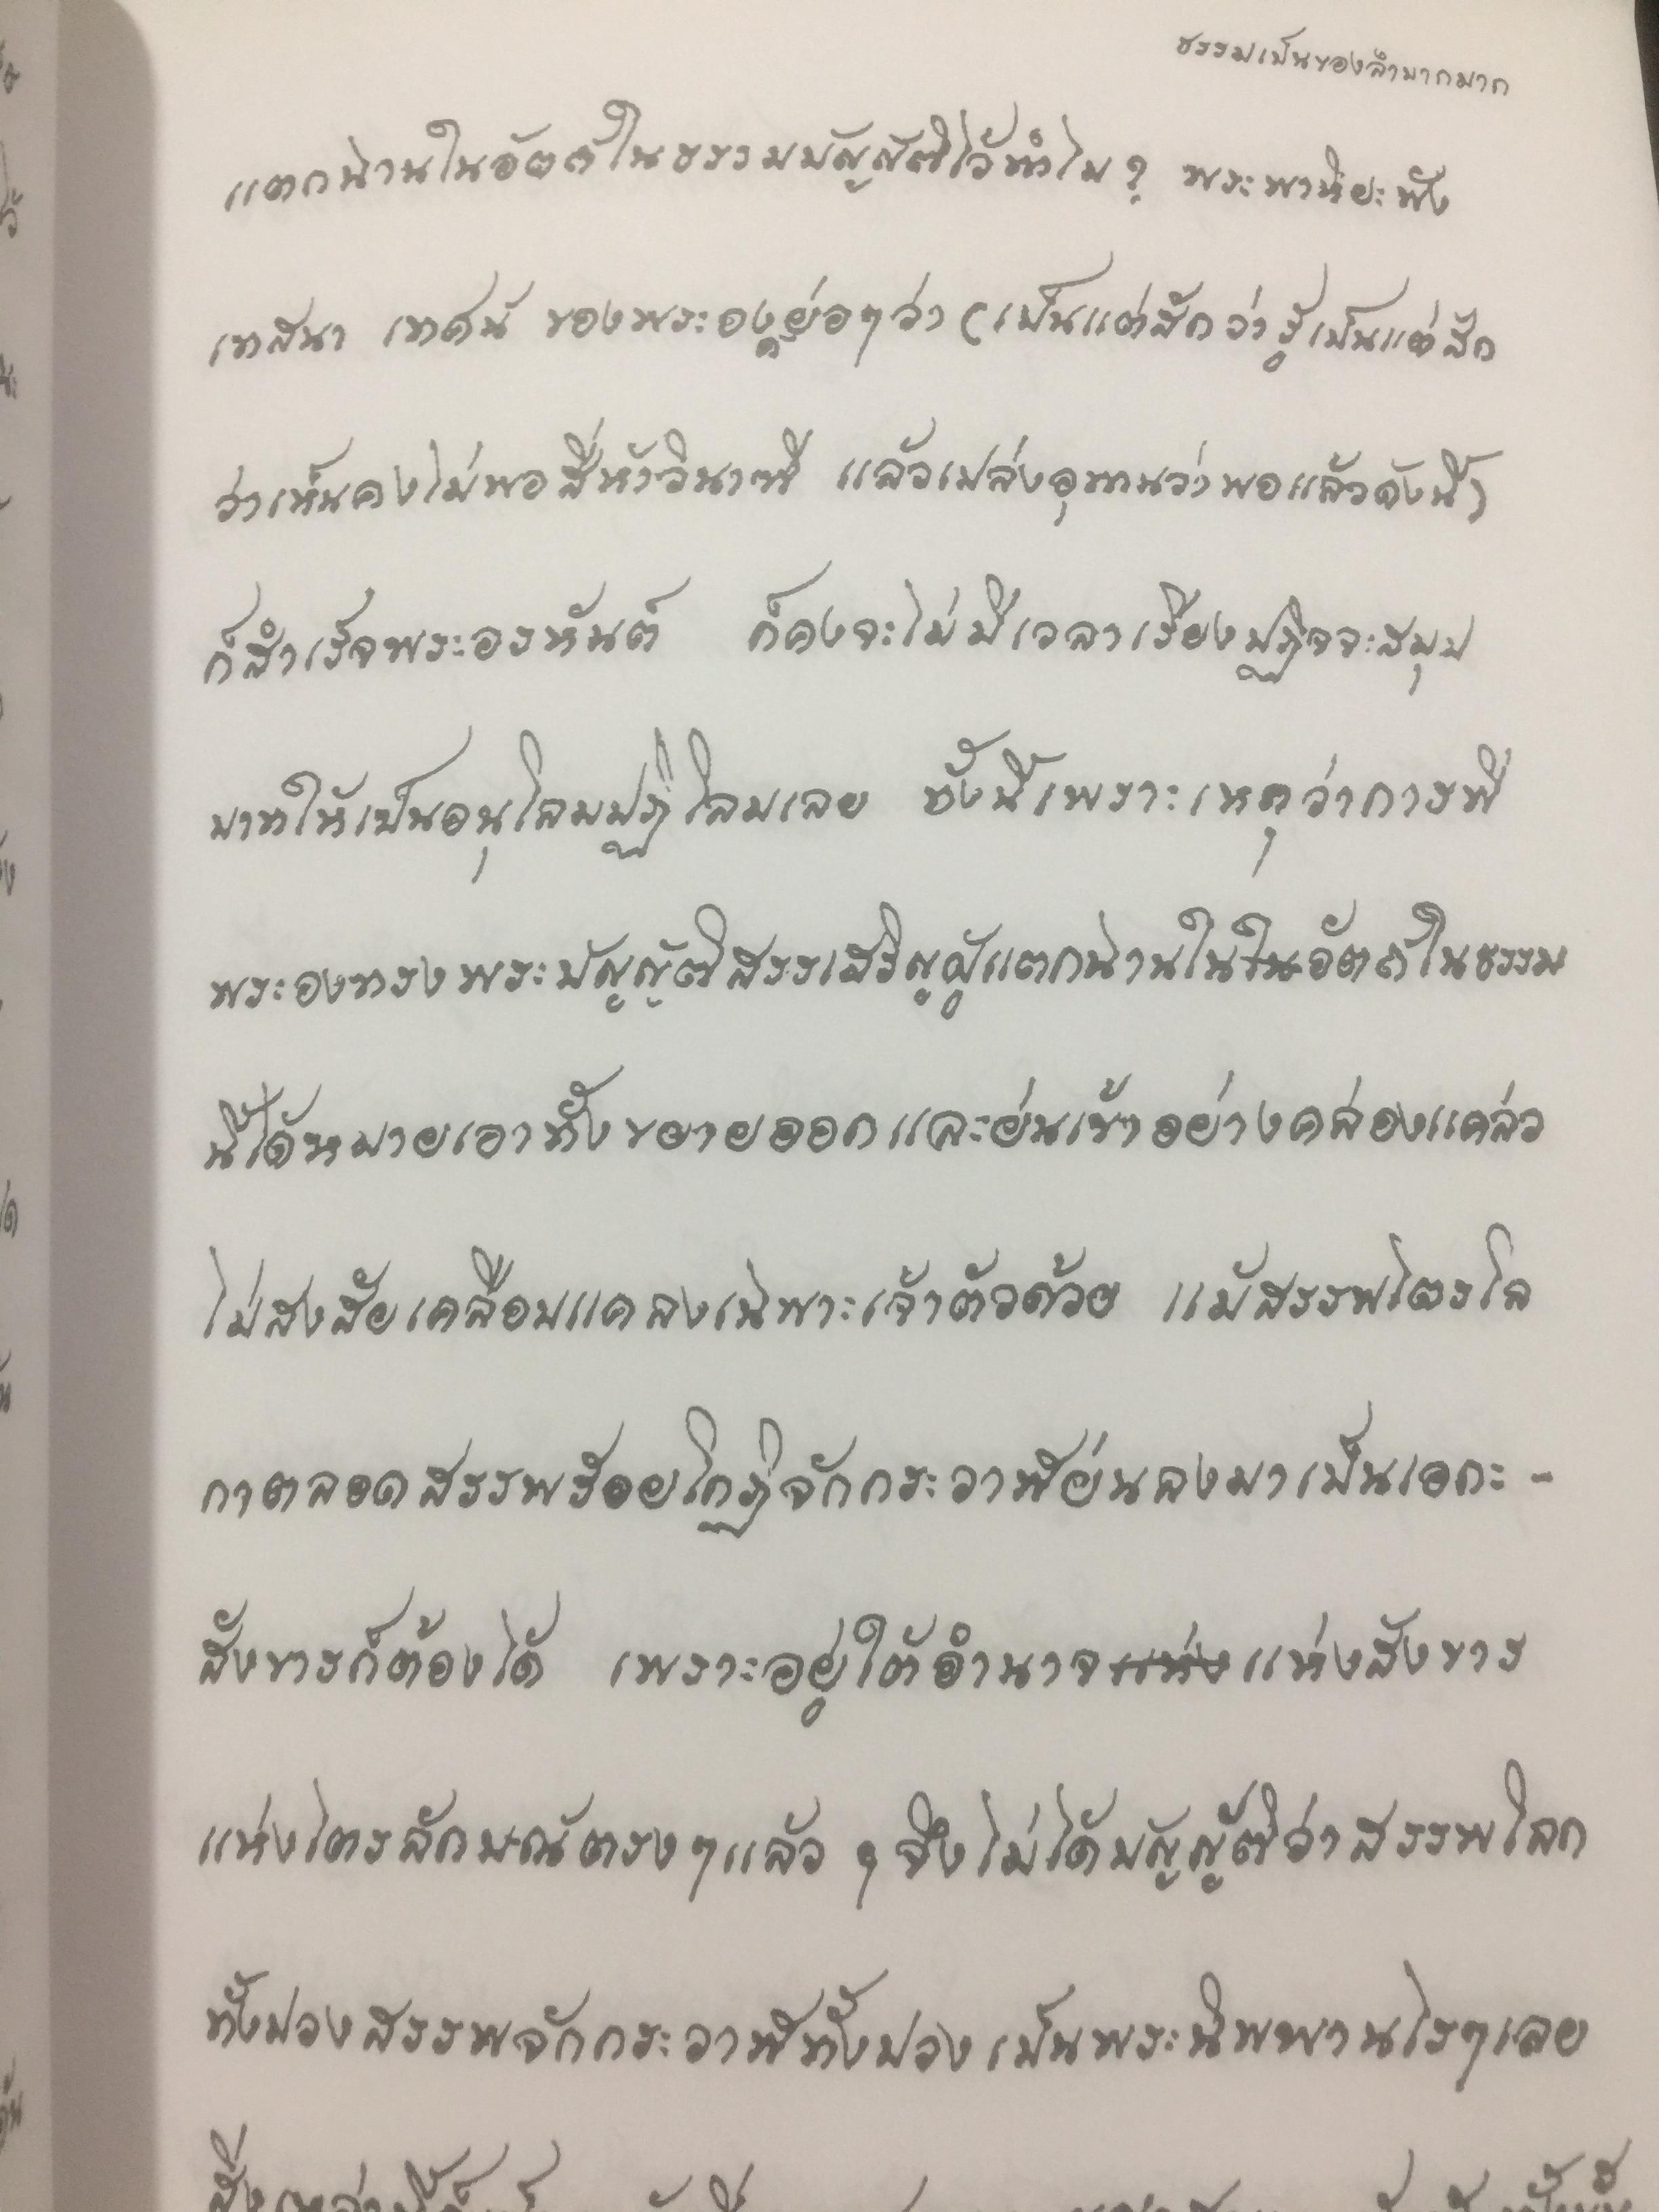 ธรรมเป็นของลำบากมาก
แตกฉานในอัตถ์ในธรรมบัญญัติไว้ทำไม? พระพาหิยะฟัง
เทสนา เทศน์ ของพระองค์ย่อๆว่า (เป็นแต่สักว่ารู้เป็นแต่สัก
ว่าเห็นคงไม่พอสี่ห้าวินาฑี แล้วเปล่งอุทานว่าพอแล้วดังนี้)
ก็สำเร็จพระอรหันต์ ก็คงจะไม่มีเวลาเรียงปฏิจจะสมุป
บาทให้เป็นอนุโลมปฏิโลมเลย ทั้งนี้เพราะเหตุว่าการที่
พระองทรงพระบัญญัติสรรเสริญผู้แตกฉานในในอัตถ์ในธรรม
นี้ได้หมายเอาทั้งขยายออกและย่นเข้าอย่างคล่องแคล่ว
ไม่สงสัยเคลือบแคลงเฉพาะเจ้าตัวด้วย แม้สรรพไตรโล
กาตลอดสรรพร้อยโกฏิจักกระวาฬย่นลงมาเป็นเอกะ -
สังขารก็ต้องได้ เพราะอยู่ใต้อำนาจแห่งแห่งสังขาร
แห่งไตรลักษณ์ตรงๆแล้ว ๆ จึงไม่ได้บัญญัติว่าสรรพโลก
ทั้งปวงสรรพจักกระวาฬทั้งปวงเป็นพระนิพพานไรๆเลย